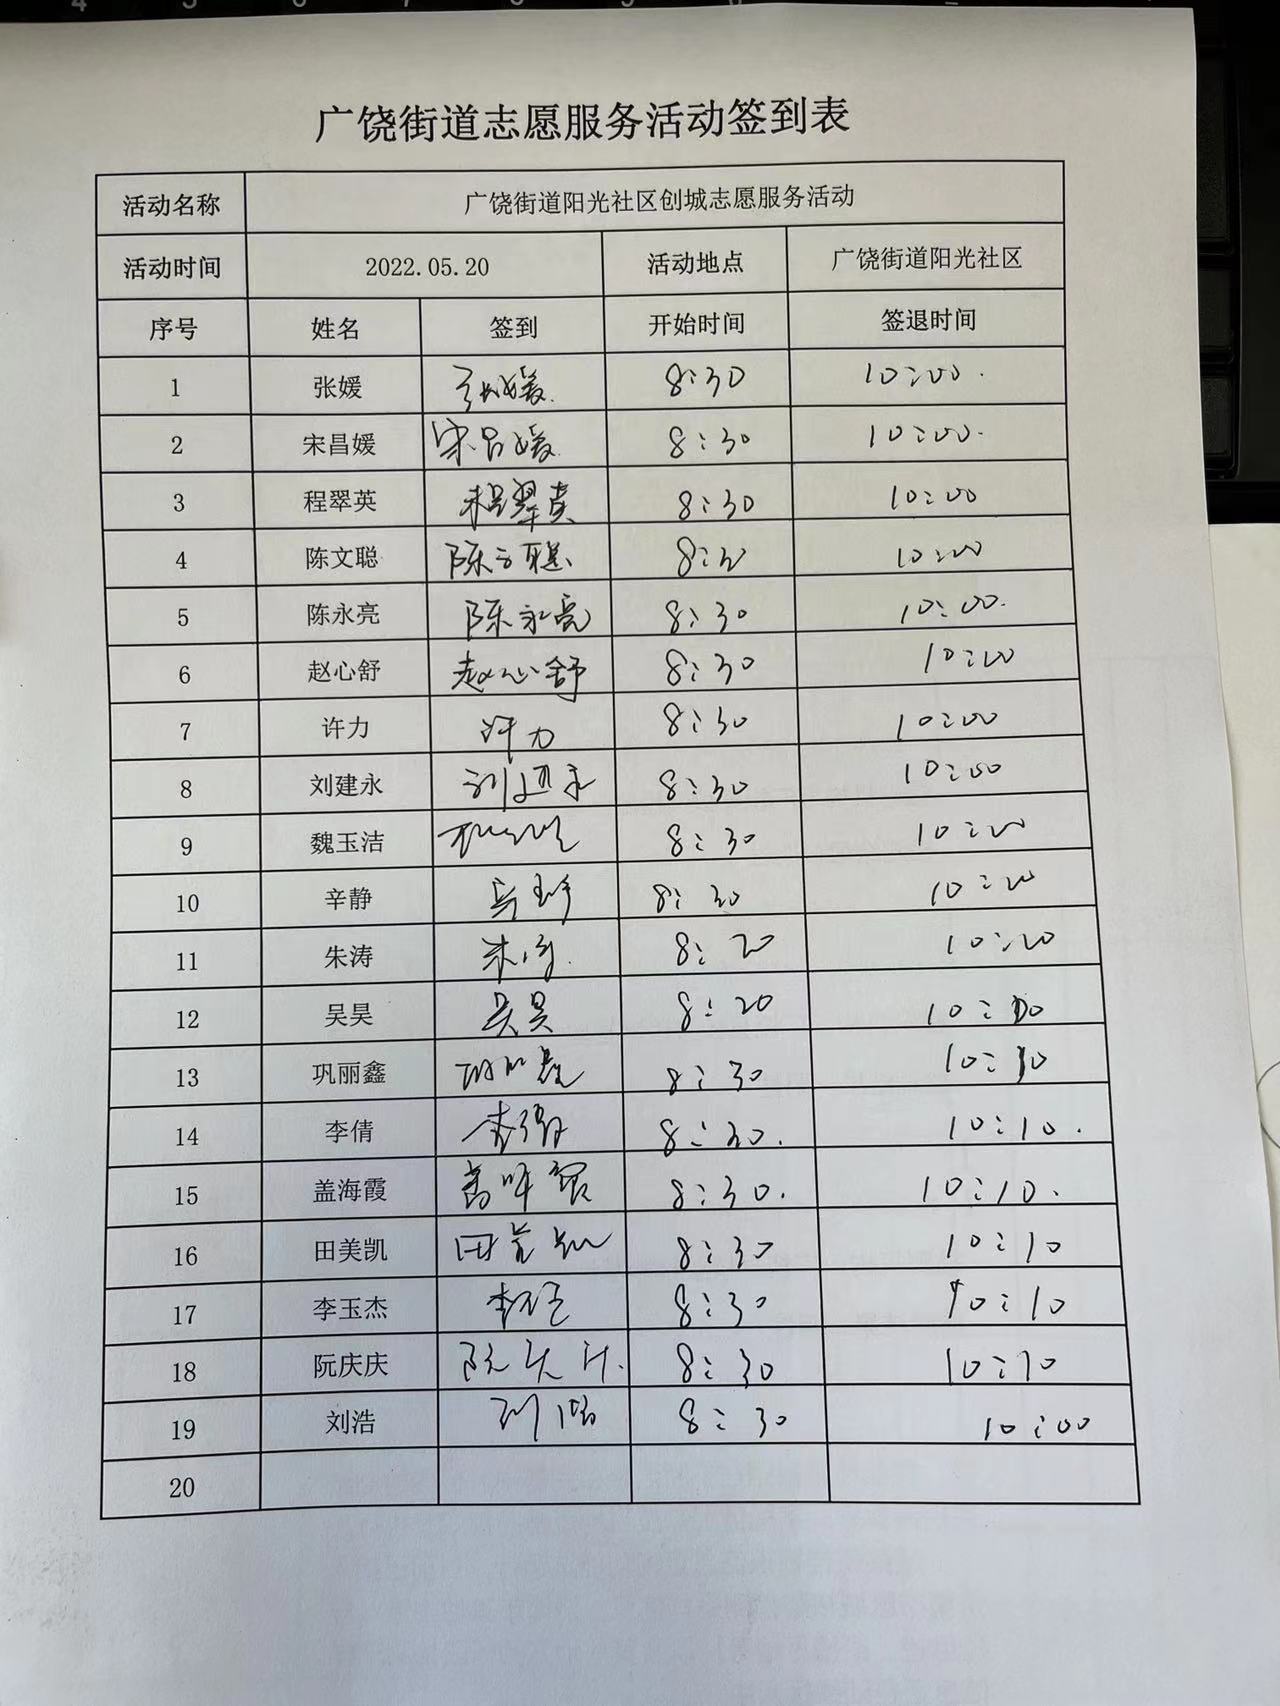 广饶街道志愿服务活动签到表
活动名称 广饶街道阳光社区创城志愿服务活动
活动时间 2022.05.20 活动地点 广饶街道阳光社区
序号 姓名 签到 开始时间 签退时间
1 张媛 张媛 8:30 10:00
2 宋昌媛 宋昌媛 8:30 10:00
3 程翠英 程翠英 8:30 10:00
4 陈文聪 陈文聪 8:30 10:00
5 陈永亮 陈永亮 8:30 10:00
6 赵心舒 赵心舒 8:30 10:00
7 许力 许力 8:30 10:00
8 刘建永 刘建永 8:30 10:00
9 魏玉洁 8:30 10:00
10 辛静 辛静 8:30
11 朱涛 朱涛 8:20
12 吴昊 吴昊 8:20
13 巩丽鑫 巩丽鑫 8:30
14 李倩 李倩 8:30 10:10
15 盖海霞 盖海霞 8:30 10:10
16 田美凯 田美凯 8:30 10:10
17 李玉杰 8:30 10:10
18 阮庆庆 阮庆庆 8:30 10:10
19 刘浩 刘浩 8:30 10:00
20